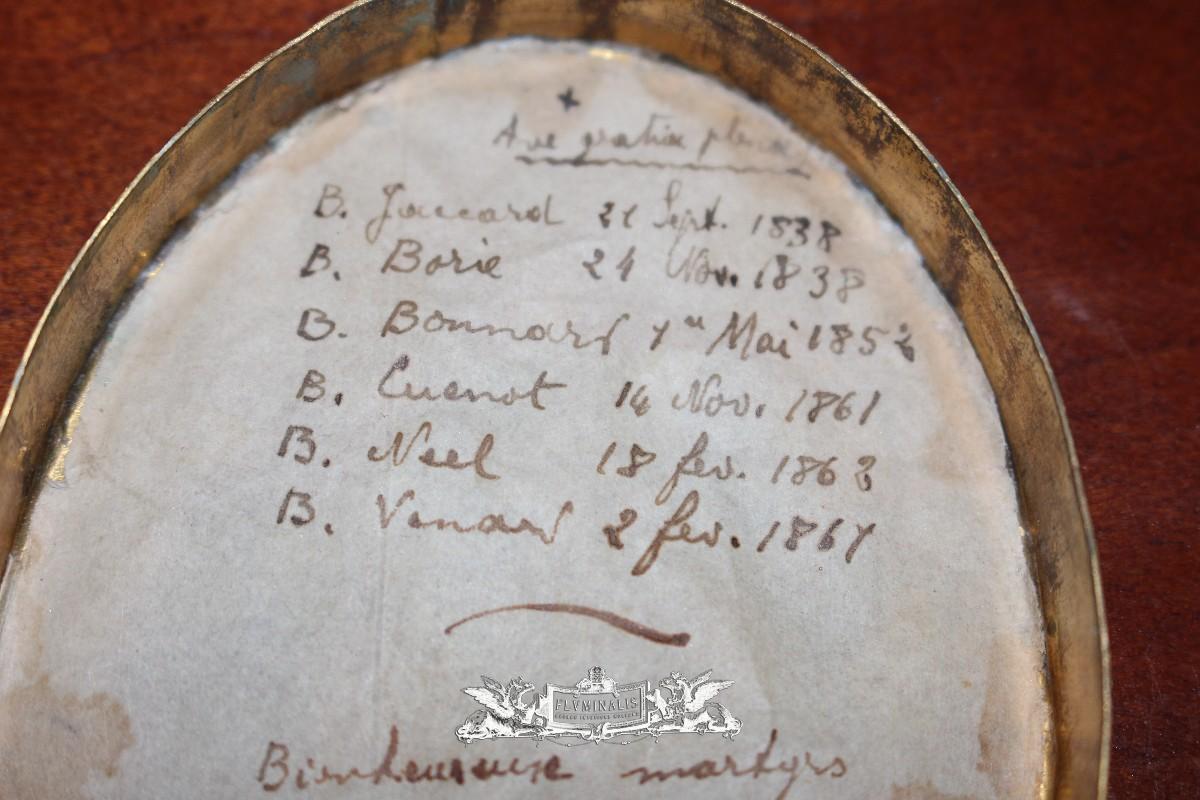 +
Ave gratia plena
B. Jaccard 21 Sept. 1838
B. Borie 24 Nov. 1838
B. Bonnard 1er Mai 1852
B. Cuenot 14 Nov. 1861
B. Neel 18 fev. 1862
B. Venard 2 fev. 1861
FLVMINALIS
Bienheureux martyrs